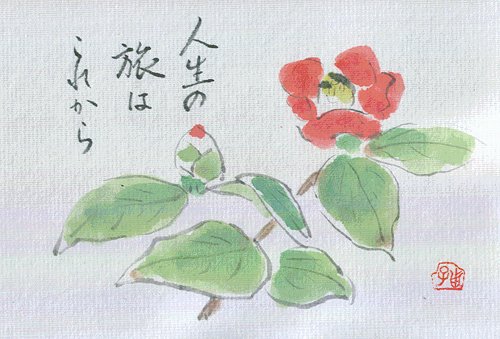 人生の
旅は
これから